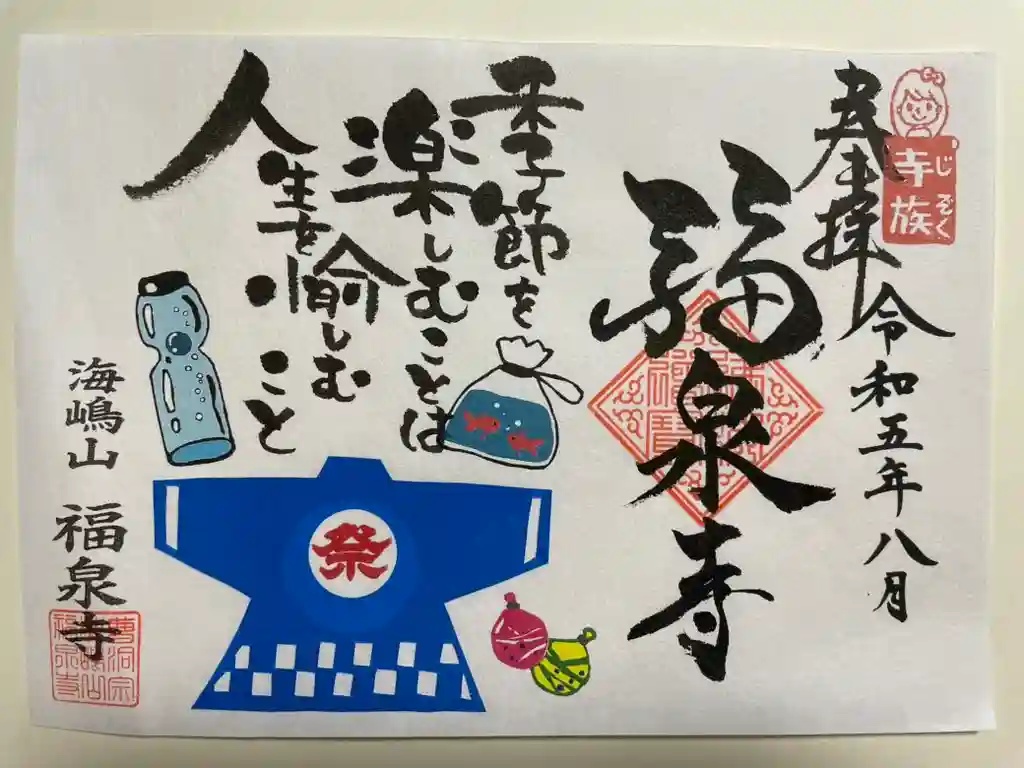 奉拝
令和五年八月
寺族
じぞく
福泉寺
季節を
楽しむことは
人生を
愉しむ
こと
祭
海嶋山
福泉寺
曹洞宗
福泉寺